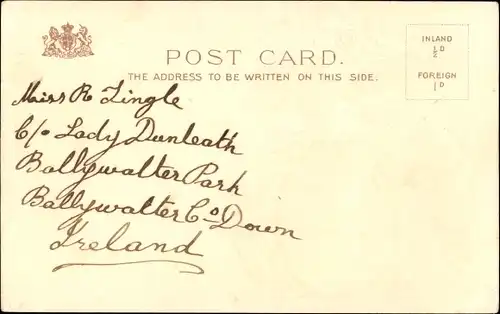 POST CARD.
THE ADDRESS TO BE WRITTEN ON THIS SIDE.
INLAND
½D
FOREIGN
1/D
Miss R Tingle
C/o Lady Dunleath
Ballywalter Park
Ballywalter Co Down
Ireland